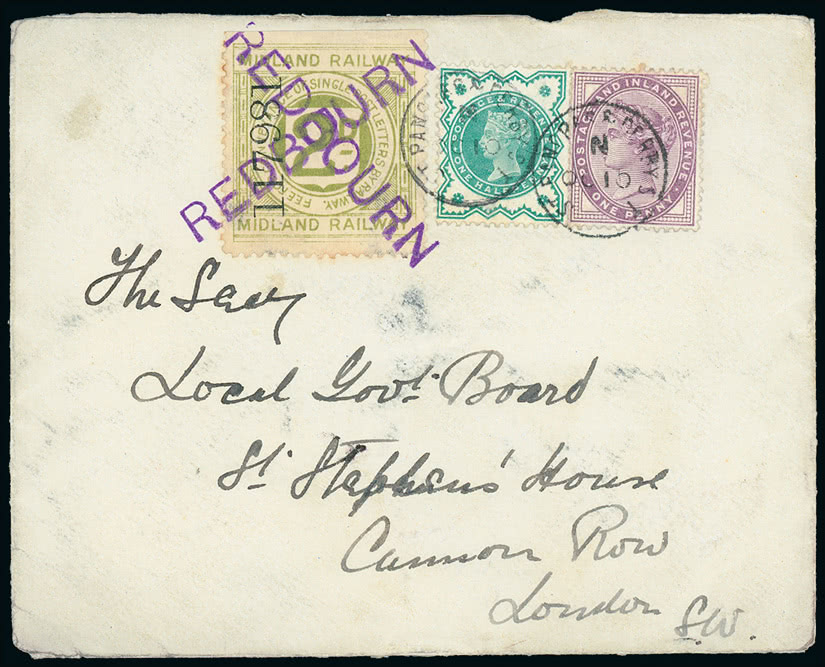 MIDLAND RAILWAY
117981
MIDLAND RAILWAY
REDBOURN
REDBOURN
POSTAGE & REVENUE
ONE HALF PENNY
POSTAGE AND INLAND REVENUE
ONE PENNY
N
OC 10
The Secy
Local Govt. Board
St. Stephens' House
Cannon Row
London S.W.